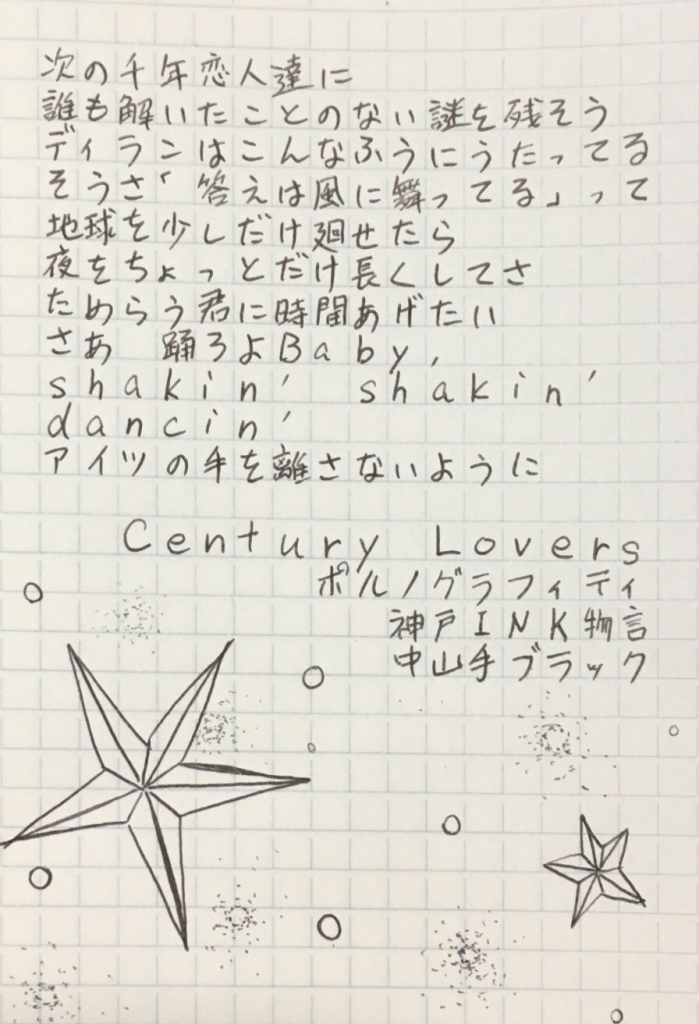 次の千年恋人達に
誰も解いたことのない謎を残そう
ディランはこんなふうにうたってる
そうさ「答えは風に舞ってる」って
地球を少しだけ廻せたら
夜をちょっとだけ長くしてさ
ためらう君に時間あげたい
さあ　踊ろよBaby,
shakin' shakin'
dancin'
アイツの手を離さないように
Century Lovers
ポルノグラフィティ
神戸INK物言
中山手ブラック